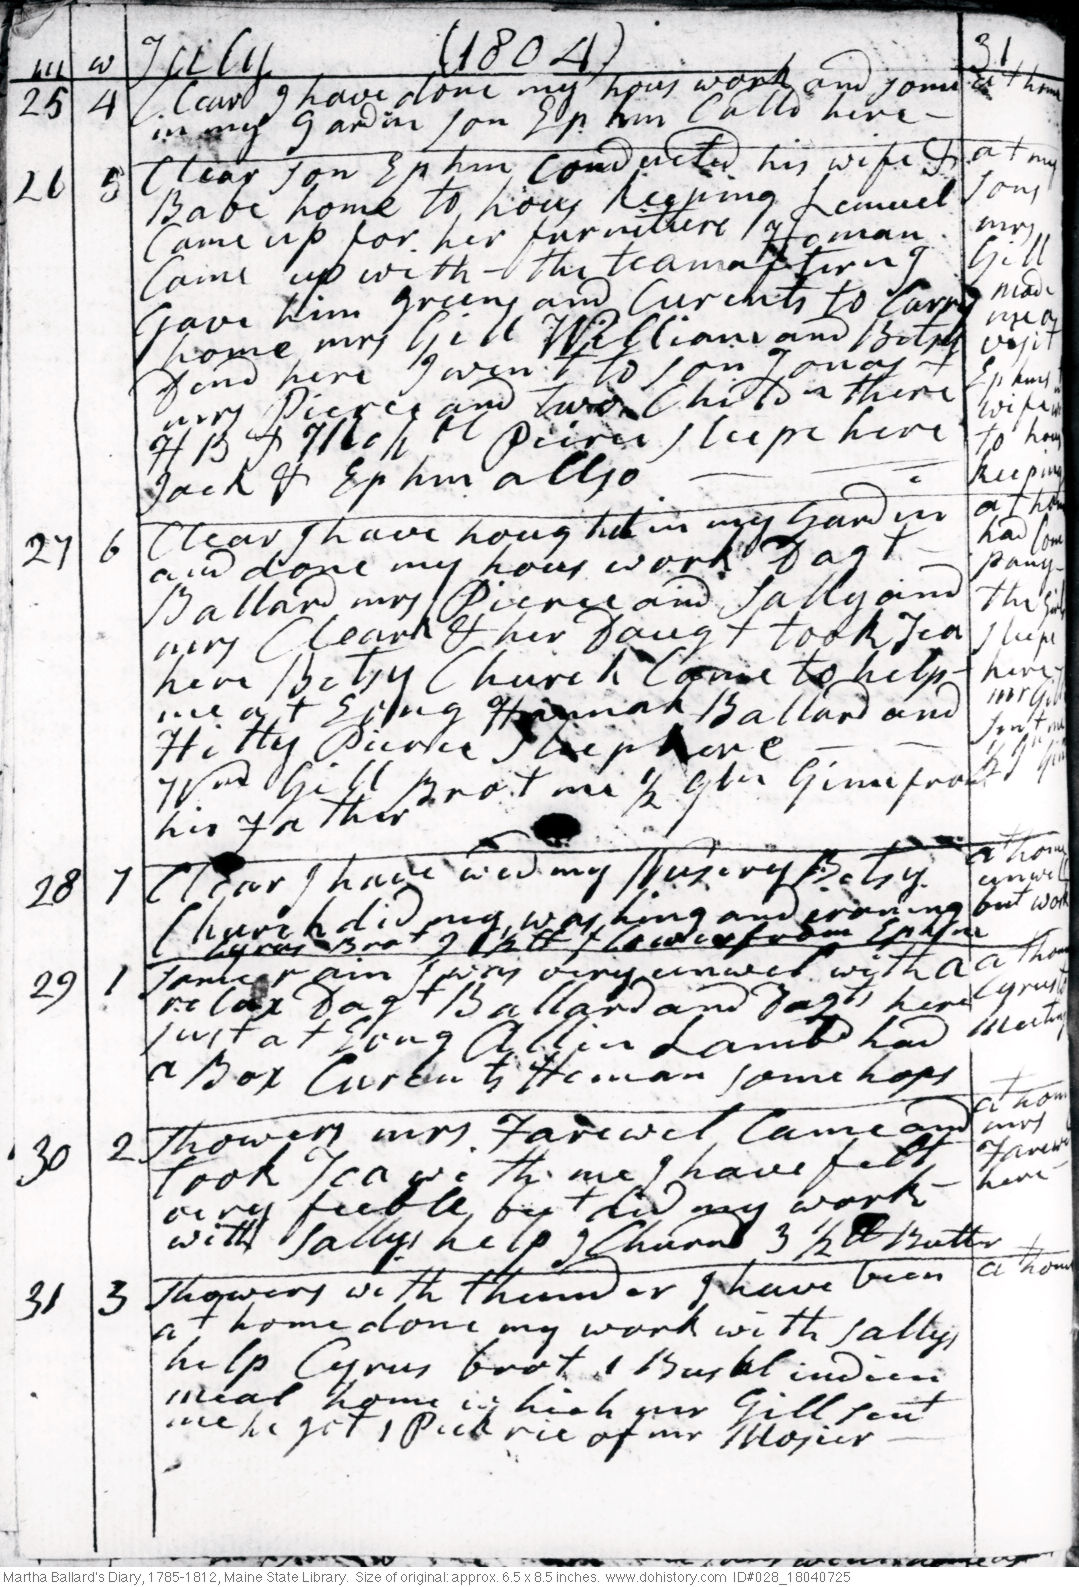 m w July (1804) 31
25 4 Clear I have done my hous work and some at home
in my gardin son Ephm Calld here –
26 5 Clear son Ephm Conducted his wife & at my
Babe home to hous keeping Lemuel sons
Came up for her furniture Heman mrs
Came up with the team after Gill
Gave him greens and Curents to Carry made
home mrs Gill William and Betsy me a
Dind here I went to son Jonas – visit
mrs Pierce and two Children there Ephms wife
HB & Peirce sleept here to hous
Jack & Ephm allso keeping
27 6 Clear I have hough in my Gardin at home
and done my hous work Dagt had Com
Ballard mrs Pierce and Sally and pany
mrs Cleark & her Daugt took Tea the Girls
here Betsy Church Came to help sleept
me at Evng Hannah Ballard and here
Hitty Pierce sleept here mr Gill sent me
Wm Gill Brot me ½ Gln Ginn from
his Father
28 7 Clear I have wed my Nusery Betsy at home unwell
Church did my washing and ironing but work
Cyrus Brot from Ephm
29 1 some rain I was very unwel with a at home
relax Dagt Ballard and Dagts here Cyrus
just at Evng Allin Lamb had Meeting
a Box Curents Heman some hops
30 2 Showers mrs Farewel Came and at home mrs
took Tea with me I have felt Farewel
very feeble but did my work – here –
with Sallys help I Churnd 3 ½ lb Butter
31 3 Showers with thunder I have been at home
at home done my work with Sallys
help Cyrus brot 1 Bushl indien
meal home which mr Gill sent
me he got 1 Peck rie of mr Mosier –
Martha Ballard's Diary, 1785-1812, Maine State Library. Size of original: approx. 6.5 x 8.5 inches. www.dohistory.com ID#028_18040725